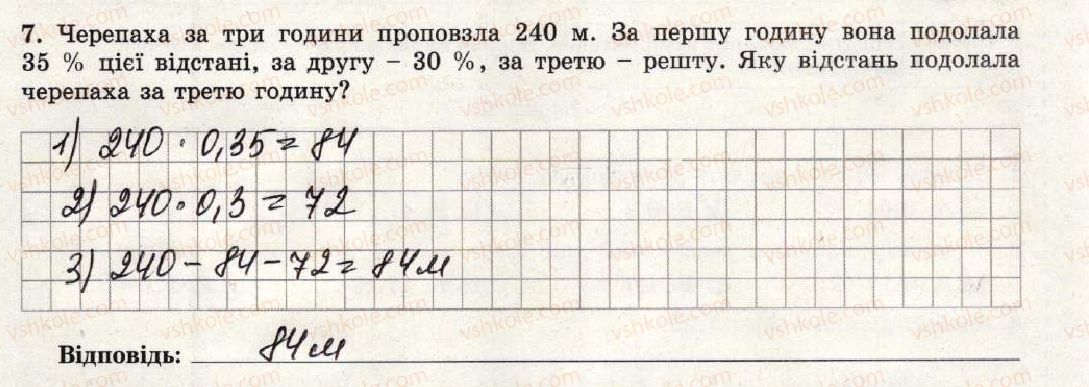 7. Черепаха за три години проповзла 240 м. За першу годину вона подолала
35 % цієї відстані, за другу – 30 %, за третю – решту. Яку відстань подолала
черепаха за третю годину?
1) 240 · 0,35 = 84
2) 240 · 0,3 = 72
3) 240 – 84 – 72 = 84м
Відповідь: 84м
vshkole.com